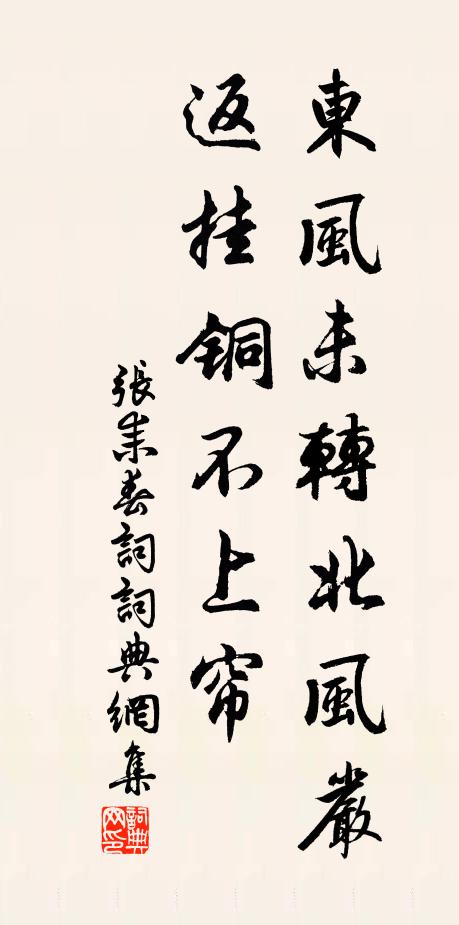 東風未轉北風嚴
返挂銅不上帘
張耒春詞詞典網集
詞典
网印